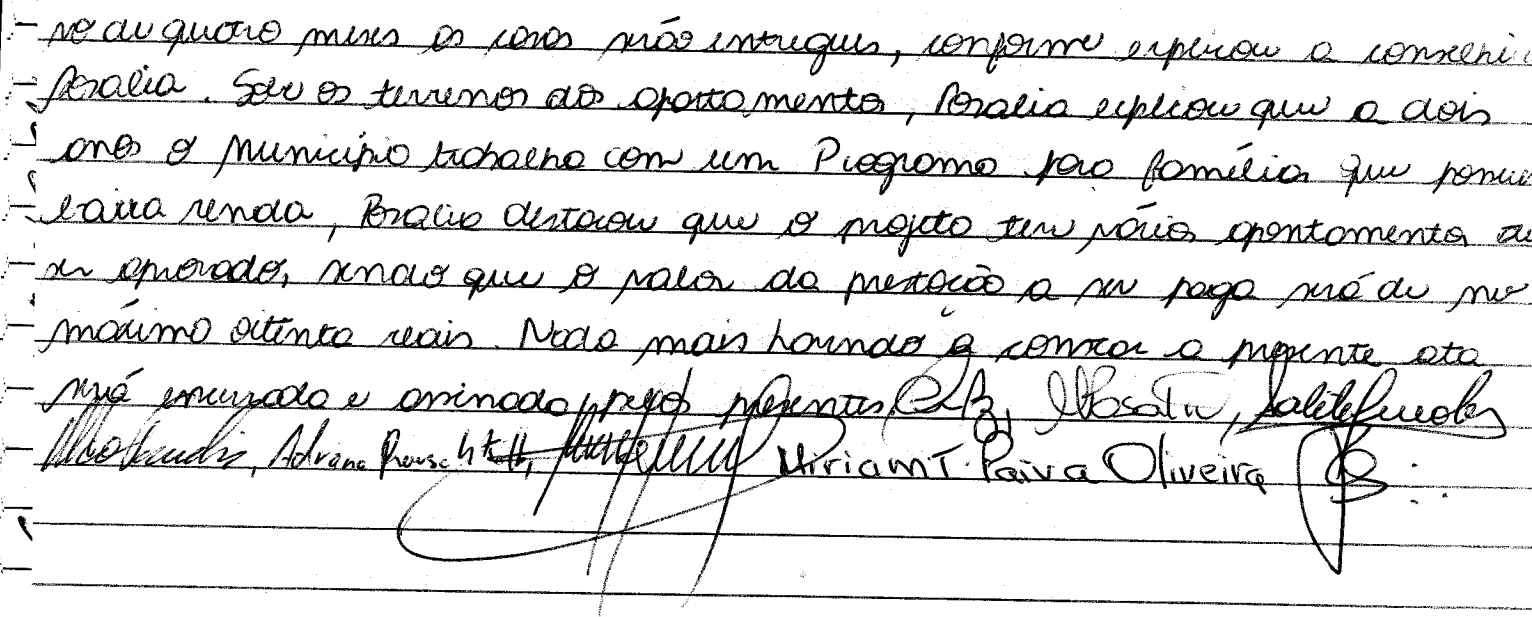 ro de quatro meses as casas serão entregues, conforme explicou a conselhei
Rosalia. Sobre os terrenos dos apartamentos, Rosalia explicou que a dois
anos o Município trabalha com um Programa para famílias que possue
baixa renda, Rosalia destacou que o projeto tem vários apontamentos de
ser aprovado, sendo que o valor da prestação a ser paga será de no
máximo oitenta reais. Nada mais havendo a constar a presente ata
será encerrada e assinada pelos presentes,
Adriana Miriam T. Paiva Oliveira